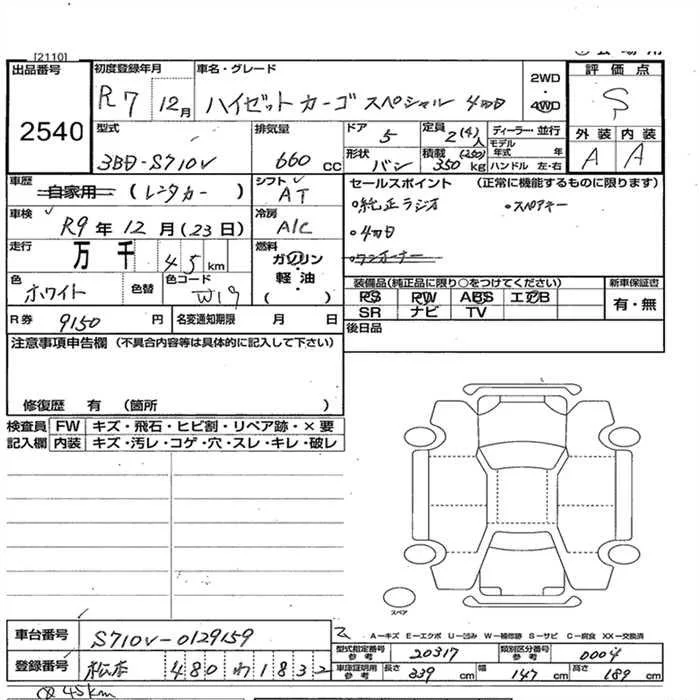 [2110]
出品番号
2540
初度登録年月
R7 12月
車名・グレード
ハイゼットカーゴ スペシャル 4WD
2WD
・
4WD
評価点
S
外装 内装
A A
型式
3BD-S710V
排気量
660 cc
ドア 5
定員 2(4)人
ディーラー・並行
モデル年式 年
形状 バン
積載 (250) 350 kg
ハンドル 左・右
車歴
自家用 (レンタカー)
シフト
AT
車検
R9年12月(23日)
冷房
A/C
走行
万 千 45 km
燃料
ガソリン
・
軽油
( )
色
ホワイト
色替
色コード
W19
R券 9150 円
名変通知期限 月 日
セールスポイント (正常に機能するものに限ります)
○純正ラジオ ○スペアキー
○4WD
○ワンオーナー
装備品(純正品に限り○をつけてください)
PS PW ABS エアB
SR ナビ TV
新車保証書
有・無
後日品
注意事項申告欄 (不具合内容等は具体的に記入して下さい)
修復歴 有 (箇所 )
検査員記入欄
FW キズ・飛石・ヒビ割・リペア跡・×要
内装 キズ・汚レ・コゲ・穴・スレ・キレ・破レ
スペア
A－キズ E－エクボ U－凹み W－補修跡 S－サビ C－腐食 XX－交換済
車台番号 S710V-0129159
登録番号 松本 480 わ 1832
型式指定番号 参考 20317
類別区分番号 参考 0004
車庫証明用 参考 長さ 339 cm 幅 147 cm 高さ 189 cm
45km